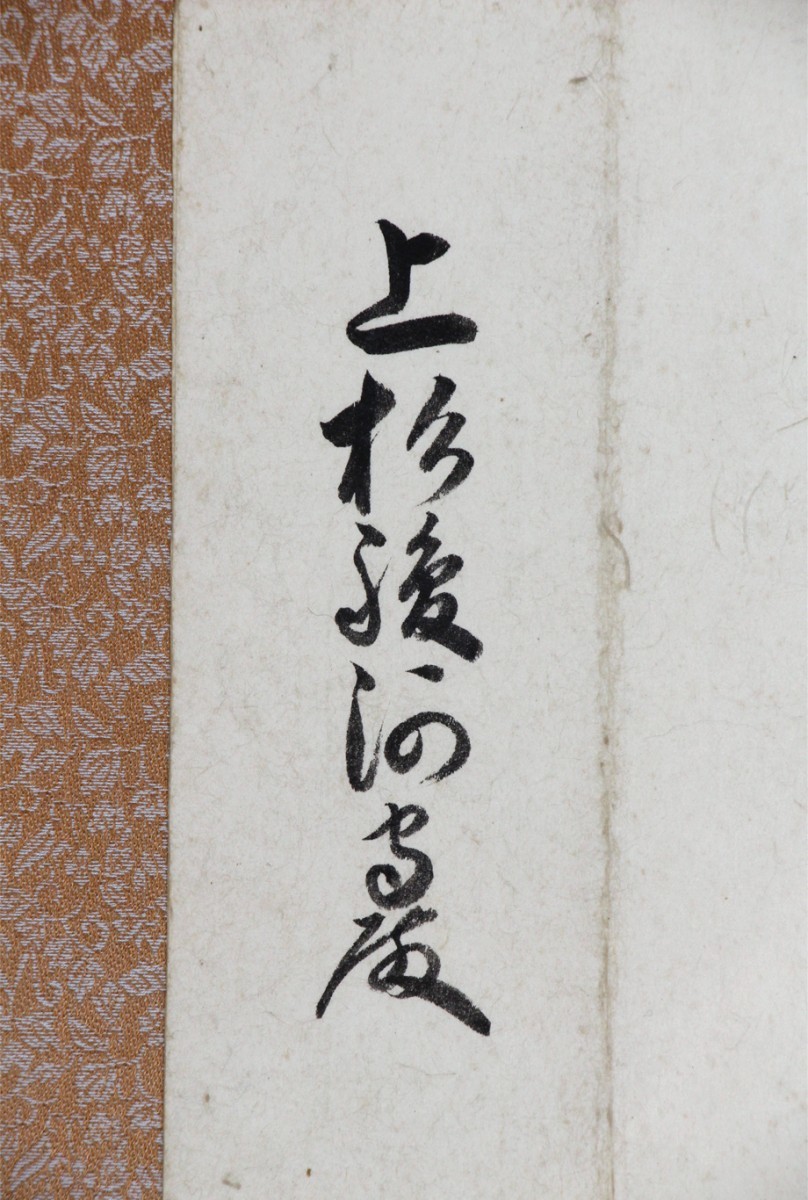 上杉駿河守殿